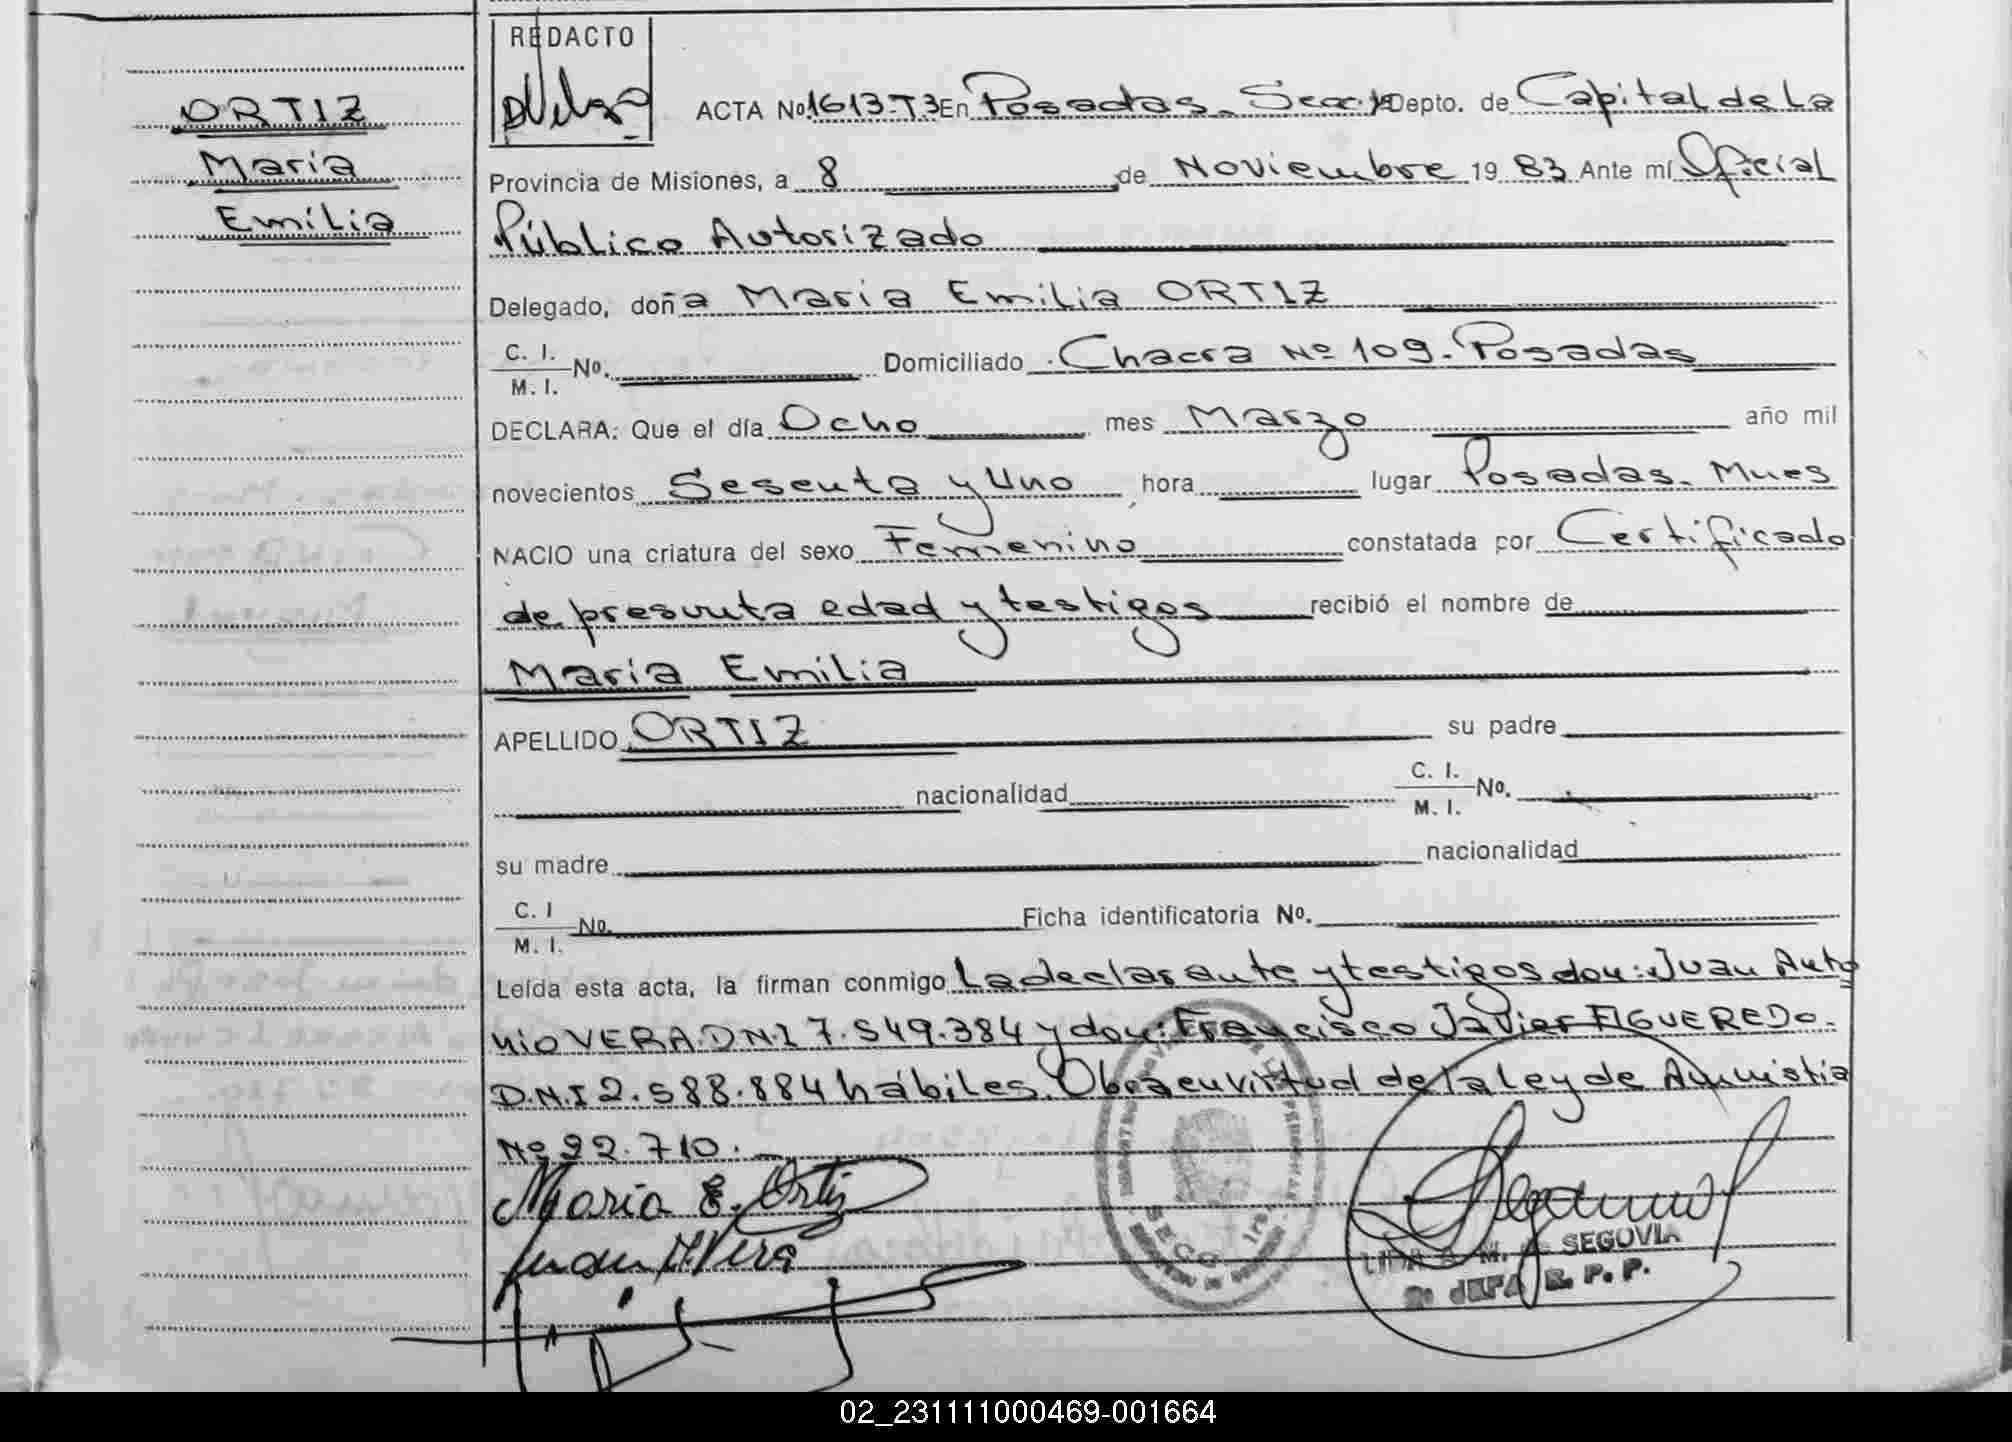 REDACTO
ORTIZ
María
Emília
ACTA No. 1613-T3 En Posadas Secc. Depto. de Capital de La
Provincia de Misiones, a 8 de Noviembre 19 83 Ante mí Oficial
Público Autorizado
Delegado, doña María Emilia ORTIZ
C. I.
M. I. No. Domiciliado Chacra Nº 109. Posadas
DECLARA: Que el día Ocho mes Marzo año mil
novecientos Sesenta y Uno hora lugar Posadas. Mnes
NACIO una criatura del sexo Femenino constatada por Certificado
de presunta edad y testigos recibió el nombre de
María Emilia
APELLIDO ORTIZ su padre
nacionalidad C. I.
M. I. No.
su madre nacionalidad
C. I
M. I. No. Ficha identificatoria No.
Leída esta acta, la firman conmigo La declarante y testigos don: Juan Anto
nio VERA. D.N.I 7.549.384 y don: Francisco Javier FIGUEREDO.
D.N.I 2.588.884 hábiles. Obra en virtud de la ley de Amnistia
Nº 22.710.
María E. Ortiz
Juan A. Vera
SEGOVIA
JEFA R. P. P.
02_231111000469-001664